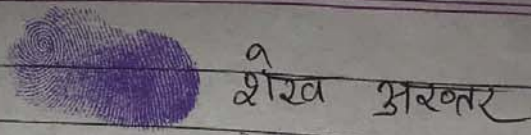 शेख अख्तर